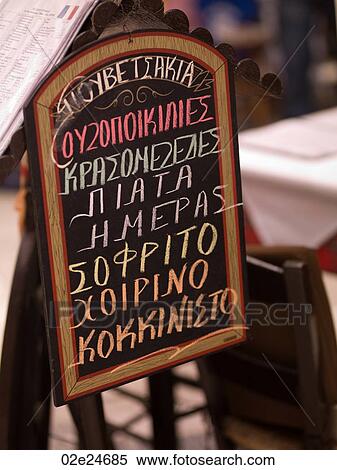 ΣΟΥΒΕΤΣΑΚΙΑ
ΟΥΖΟΠΟΙΚΙΛΙΕΣ
ΚΡΑΣΟΜΕΖΕΔΕΣ
ΠΙΑΤΑ
ΗΜΕΡΑΣ
ΣΟΦΡΙΤΟ
ΧΟΙΡΙΝΟ
ΚΟΚΚΙΝΙΣΤΟ
© fotosearch.com
02e24685 www.fotosearch.com